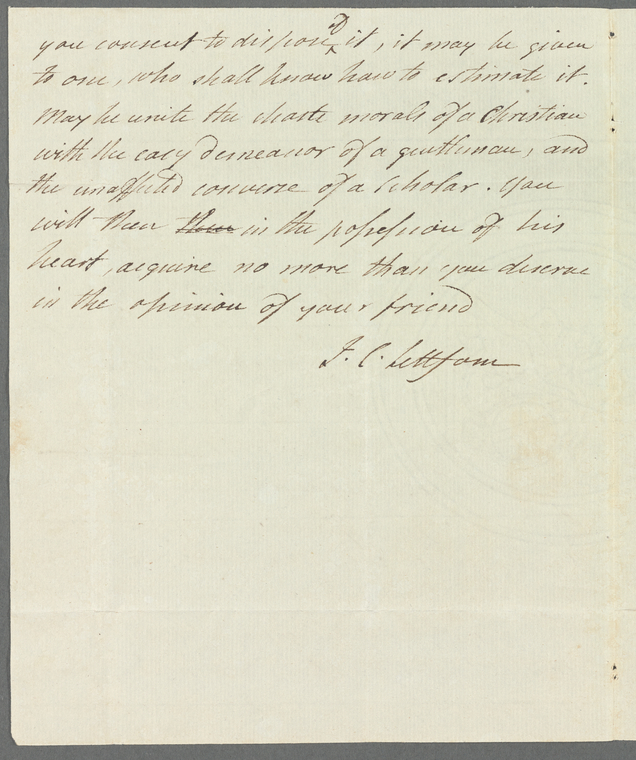 you consent to dispose of it, it may be given
to one, who shall know how to estimate it.
May he unite the chaste morals of a Christian
with the easy demeanor of a gentleman, and
the unaffected converse of a Scholar. You
will then then in the possession of his
heart, acquire no more than you deserve
in the opinion of your friend
J. C. Lettsom